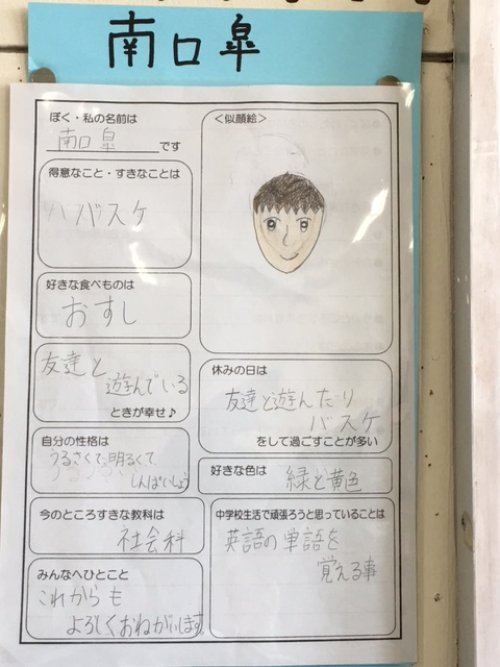 南口皐
ぼく・私の名前は
南口皐です
<似顔絵>
得意なこと・すきなことは
バスケ
好きな食べものは
おすし
友達と
遊んでいる
ときが幸せ♪
休みの日は
友達と遊んだり
バスケ
をして過ごすことが多い
自分の性格は
うるさくて明るくて
しんぱいしょう
好きな色は
緑と黄色
今のところすきな教科は
社会科
中学校生活で頑張ろうと思っていることは
英語の単語を
覚える事
みんなへひとこと
これからも
よろしくおねがいします。